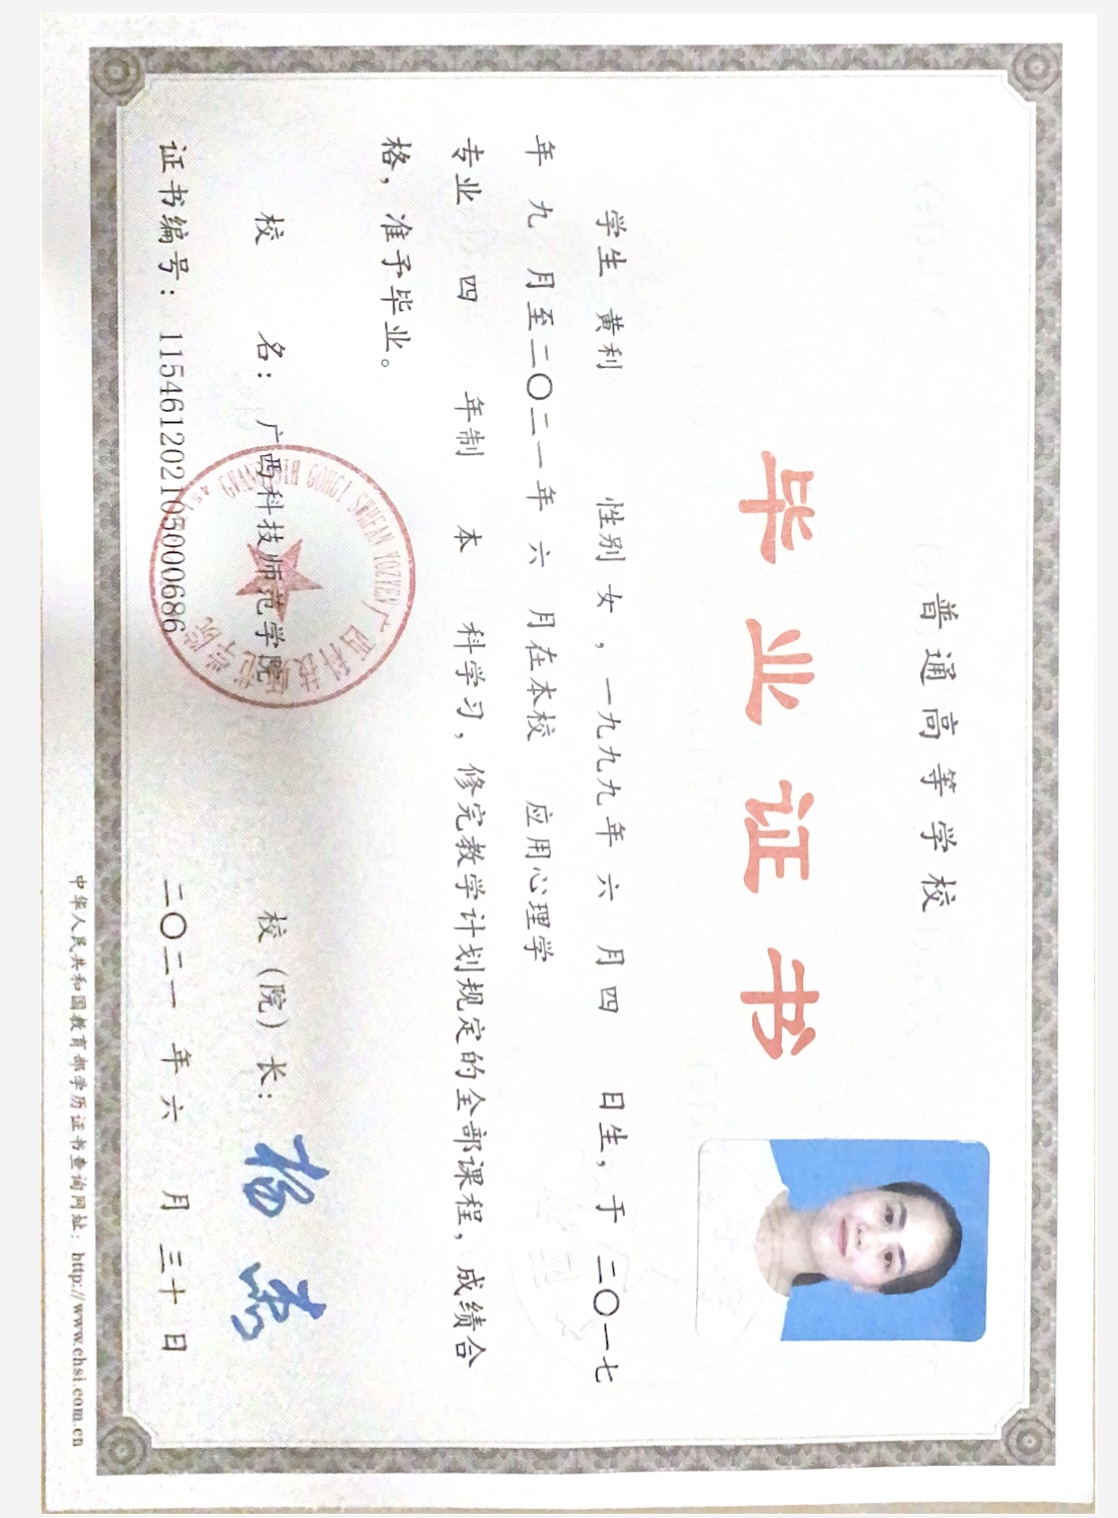 普通高等学校
毕业证书
学生 黄利 性别 女 ，一九九九年 六 月 四 日生，于 二〇一七
年 九 月至二〇二一年 六 月在本校 应用心理学
专业 四 年制 本 科学习，修完教学计划规定的全部课程，成绩合
格，准予毕业。
校 名：广西科技师范学院
校（院）长：
证书编号：115461202105000686
二〇二一 年 六 月 三十 日
广西科技师范学院
中华人民共和国教育部学历证书查询网址：http://www.chsi.com.cn